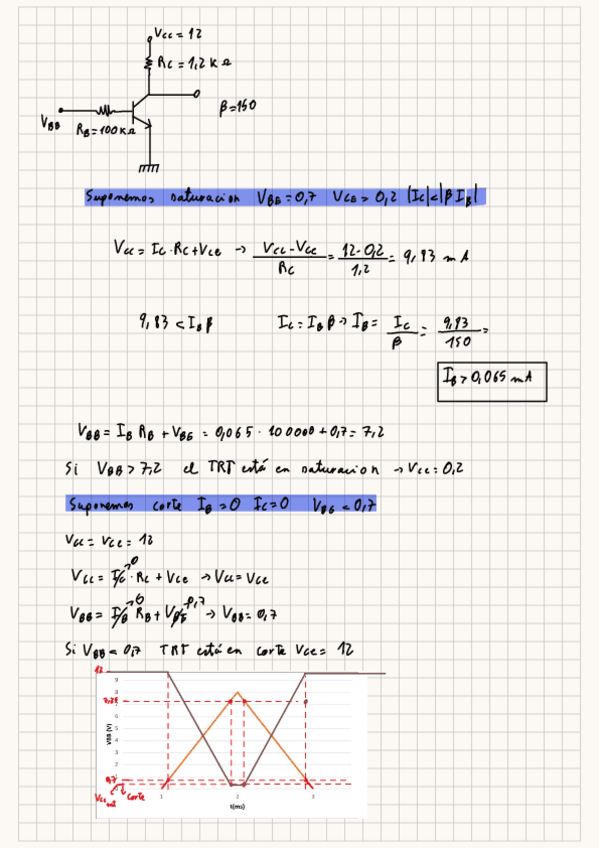 Vcc = 12
Rc = 1,2 k Ω
β = 150
VBB
RB = 100 k Ω
Suponemos saturacion VBE = 0,7 VCE = 0,2 |Ic| < |β IB|
Vcc = Ic · Rc + Vce → Vcc - Vce / Rc = 12 - 0,2 / 1,2 = 9,83 mA
9,83 < IB β Ic = IB β → IB = Ic / β = 9,83 / 150 =
IB > 0,065 mA
VBB = IB RB + VBE = 0,065 · 100000 + 0,7 = 7,2
Si VBB > 7,2 el TRT está en saturacion → Vce = 0,2
Suponemos corte IB = 0 Ic = 0 VBE < 0,7
Vcc = Vce = 12
Vcc = Ic→0 · Rc + Vce → Vcc = Vce
VBB = IB→0 RB + VBE→0,7 → VBB = 0,7
Si VBB < 0,7 TRT está en corte Vce = 12
12
9
8
7,25
6
5
4
3
2
0,7
VBB (V)
Corte
1 2 3
t(ms)